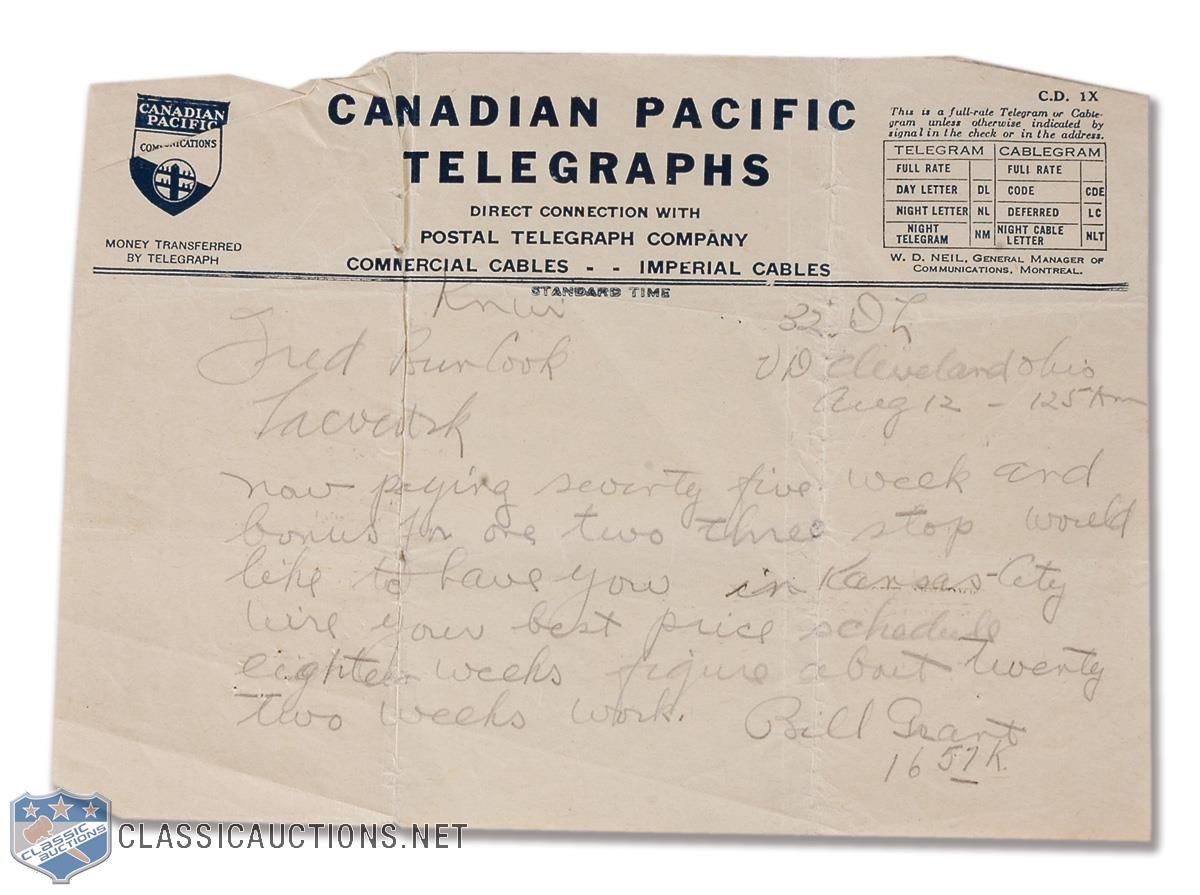 CANADIAN PACIFIC
COMMUNICATIONS
MONEY TRANSFERRED
BY TELEGRAPH
CANADIAN PACIFIC
TELEGRAPHS
DIRECT CONNECTION WITH
POSTAL TELEGRAPH COMPANY
COMMERCIAL CABLES - - IMPERIAL CABLES
STANDARD TIME
C.D. 1X
This is a full-rate Telegram or Cable-
gram unless otherwise indicated by
signal in the check or in the address.
TELEGRAM CABLEGRAM
FULL RATE FULL RATE
DAY LETTER DL CODE CDE
NIGHT LETTER NL DEFERRED LC
NIGHT TELEGRAM NM NIGHT CABLE LETTER NLT
W. D. NEIL, GENERAL MANAGER OF
COMMUNICATIONS, MONTREAL.
32 DL
Fred
VD Cleveland Ohio
Aug 12 - 125 Am
now paying seventy five week and
bonus for one two three stop would
like to have you in Kansas City
wire your best price schedule
eighteen weeks figure about twenty
two weeks work. Bill Grant
16 57 K
CLASSIC AUCTIONS
CLASSICAUCTIONS.NET